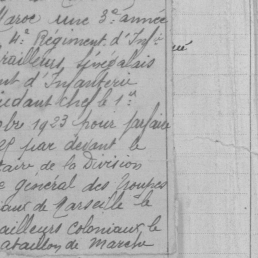 Maroc une 3e année
4e Régiment d'Inf
railleurs, Sénégalais
nt d'Infanterie
judant chef le 1er
obre 1923 pour parfaire
par devant le
taire de la Division
général des Troupes
aux de Marseille le
ailleurs coloniaux le
bataillon de Marche